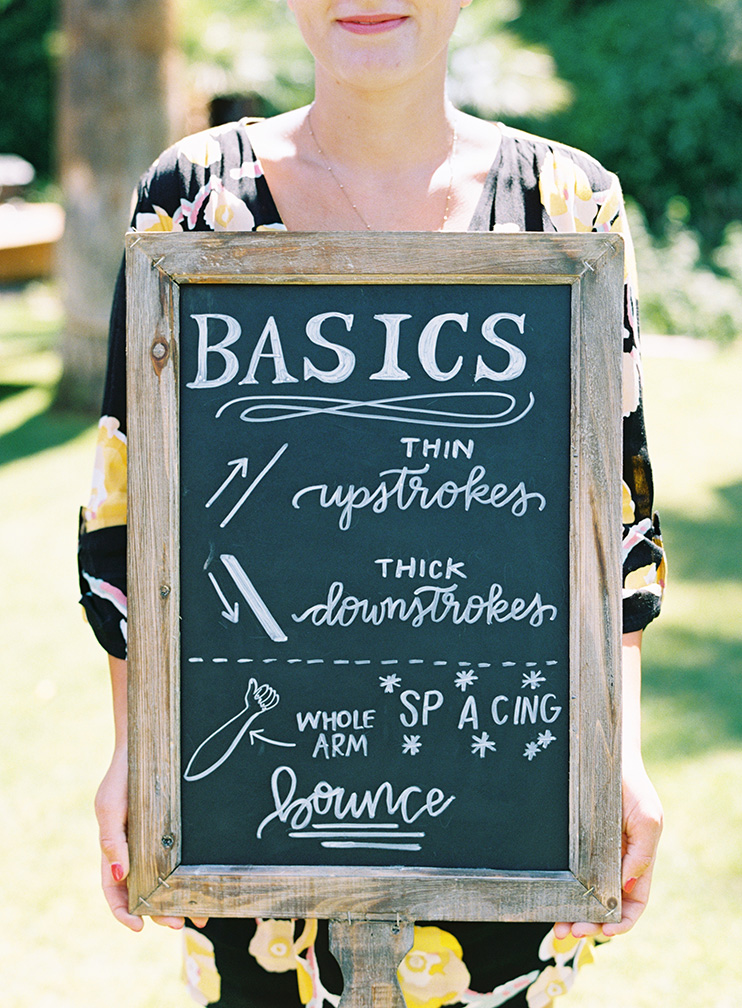 BASICS
THIN
upstrokes
THICK
downstrokes
WHOLE
ARM
SPACING
bounce